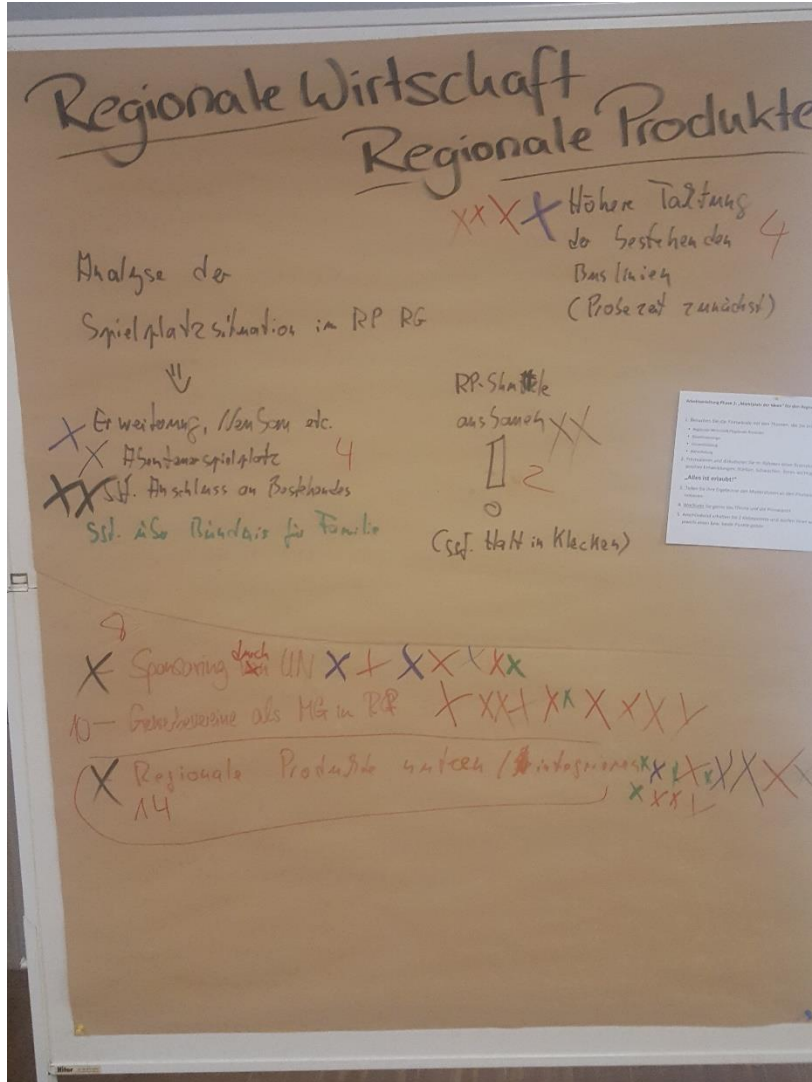 Regionale Wirtschaft
Regionale Produkte
xxXX Höhere Taktung
der bestehenden 4
Buslinien
(Probezeit zunächst)
Analyse der
Spielplatzsituation im RP RG
⇓
X Erweiterung, Neubau etc.
X Abenteuerspielplatz 4
XX ggf. Anschluss an Bestehendes
ggf. über Bündnis für Familie
RP-Shuttle
ausbauen XX
! 2
(ggf. Halt in Klecken)
"Alles ist erlaubt!"
8
X Sponsoring durch UN X X X X X X X
10 — Gewerbevereine als MG in RP X X X X X X X X X X
X Regionale Produkte nutzen / integrieren x X x X x X X X X
14 x x x x